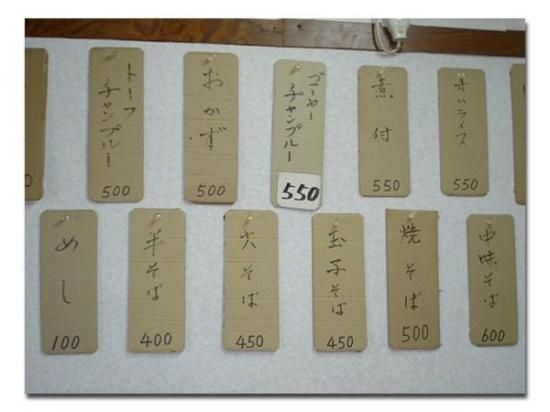 トーフ
チャンプルー
500
おかず
500
ゴーヤー
チャンプルー
550
煮付
550
オムライス
550
めし
100
半そば
400
大そば
450
玉子そば
450
焼そば
500
中味そば
600